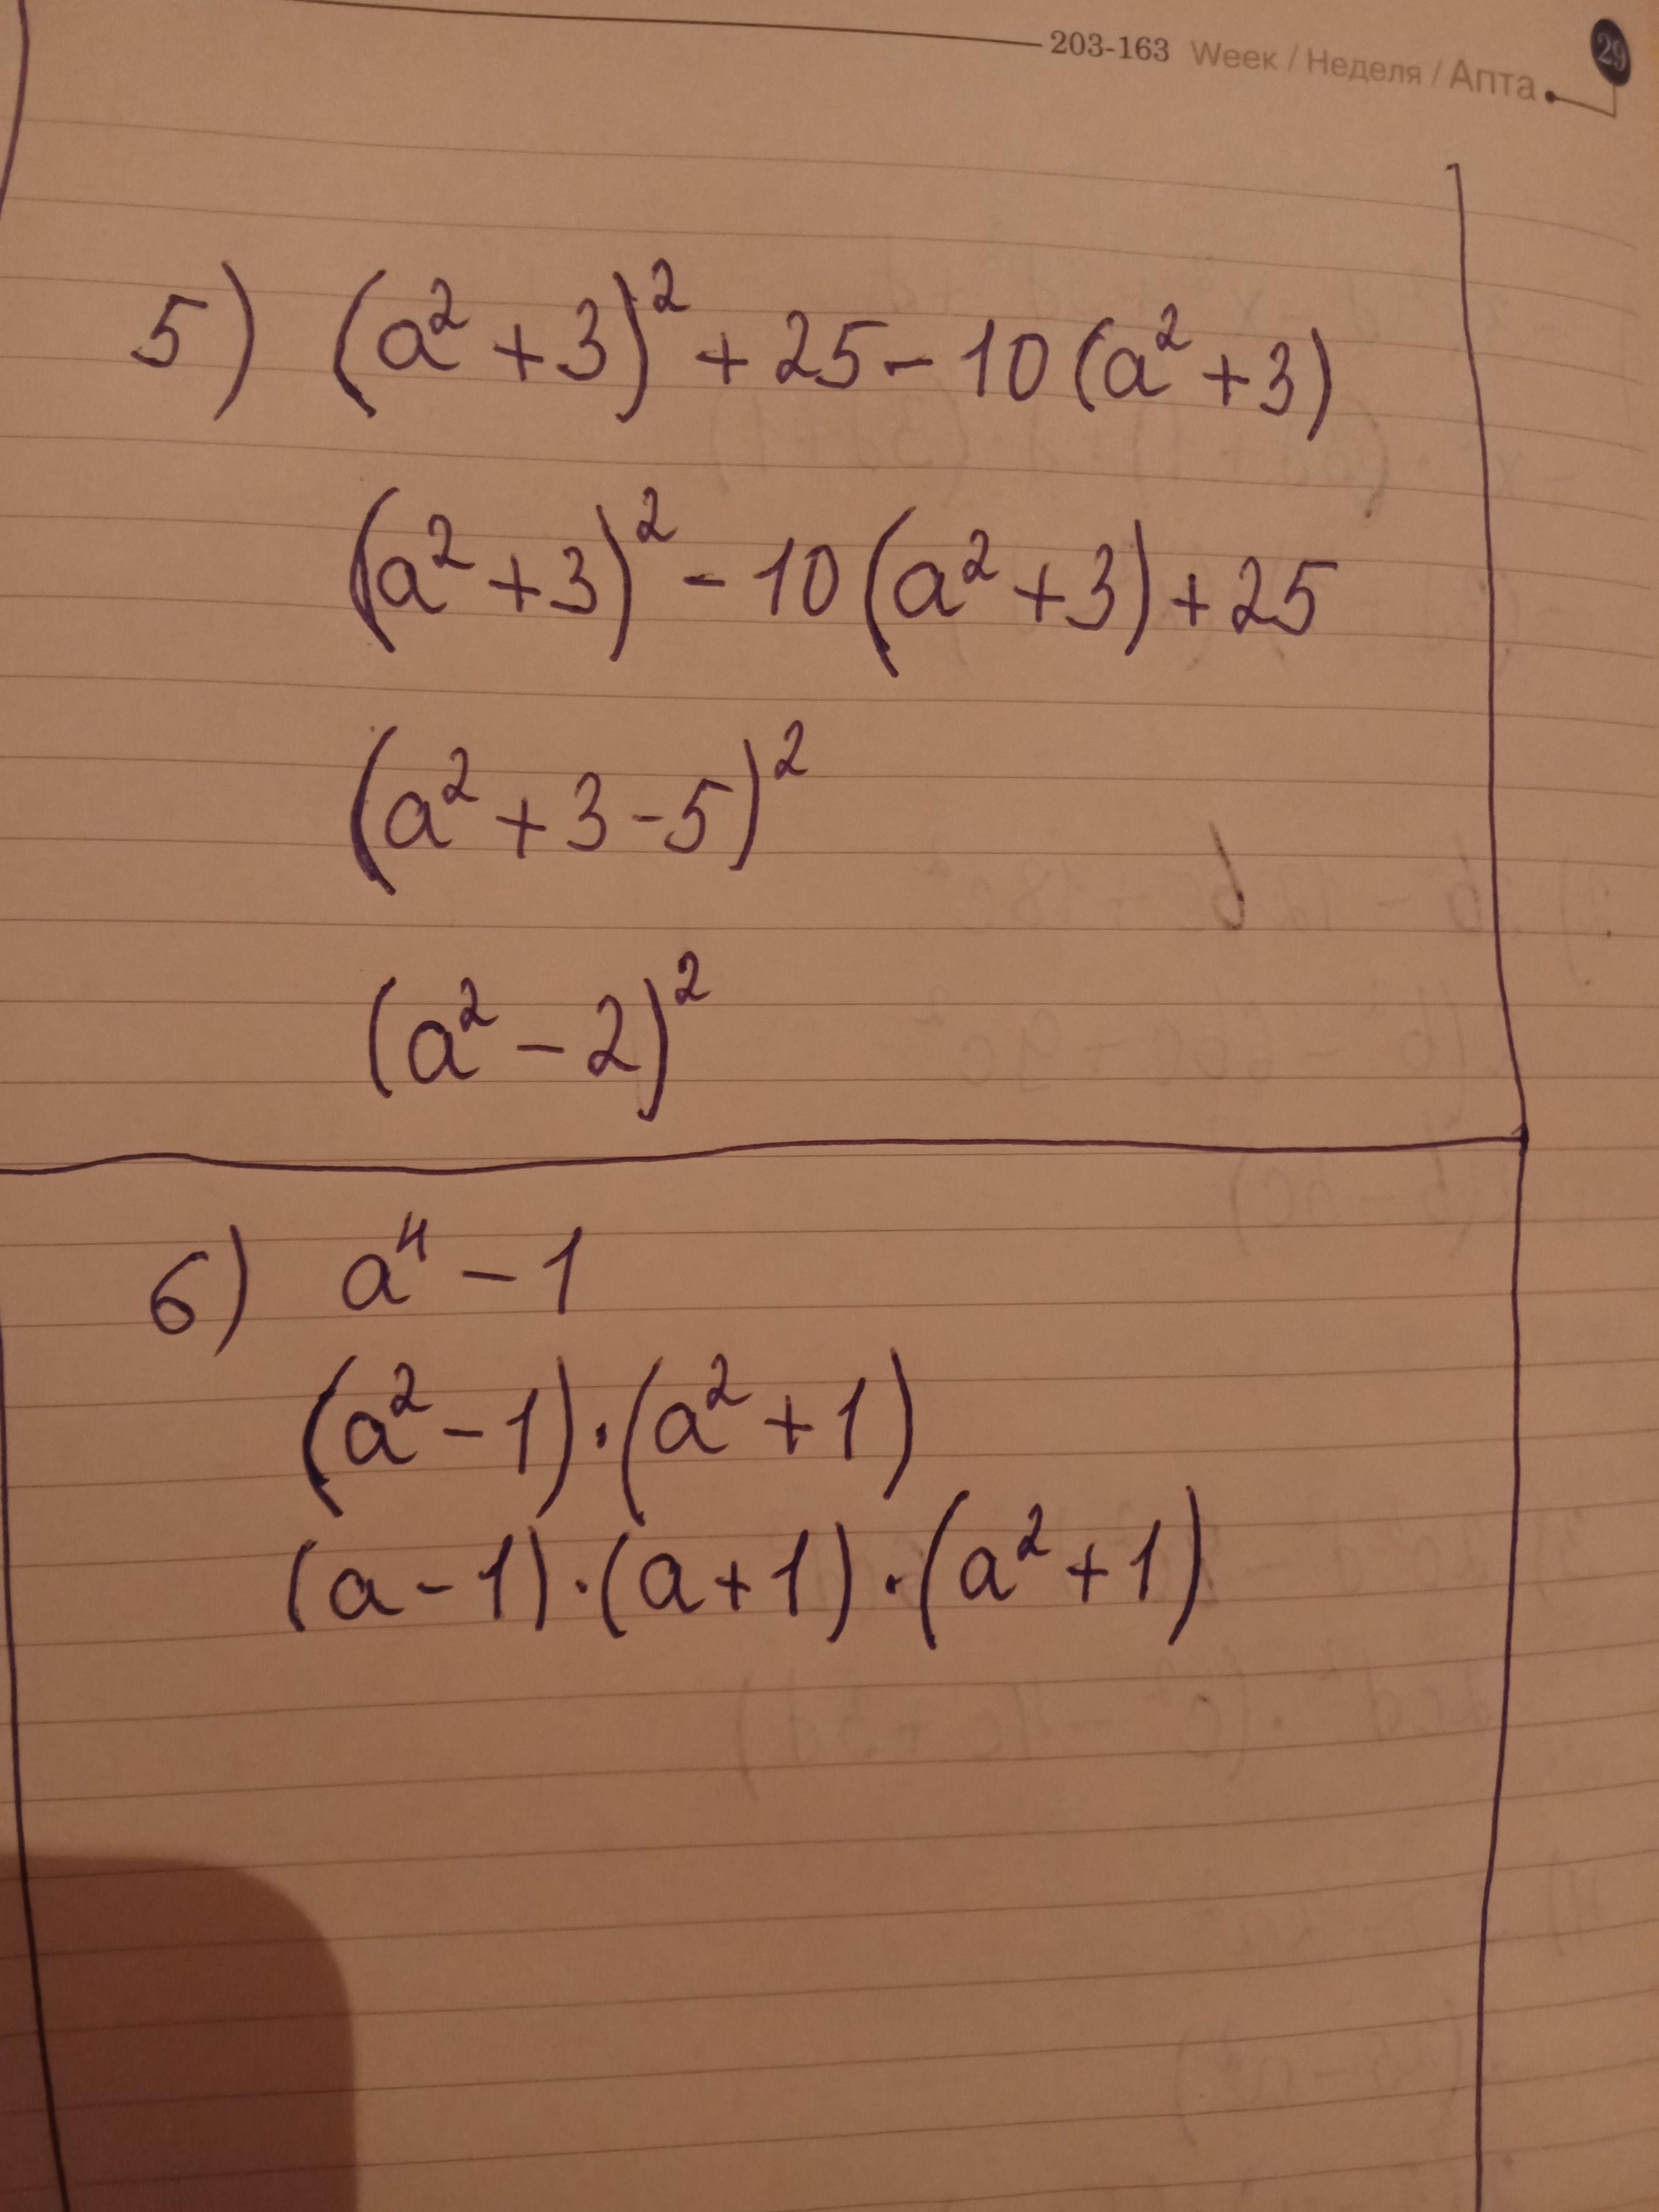 203-163 Week / Неделя / Апта 29
5) (a² + 3)² + 25 - 10 (a² + 3)
(a² + 3)² - 10 (a² + 3) + 25
(a² + 3 - 5)²
b
(a² - 2)²
6) a⁴ - 1
(a² - 1) · (a² + 1)
(a - 1) · (a + 1) · (a² + 1)